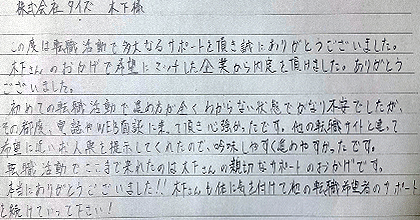 株式会社タイズ 木下様
この度は転職活動で多大なるサポートを頂き誠にありがとうございました。
木下さんのおかげで希望にマッチした企業から内定を頂けました。ありがとう
ございました。
初めての転職活動で進め方が全くわからない状態でかなり不安でしたが、
その都度、電話やWEB面談に来て頂き心強かったです。他の転職サイトと違って
希望に近い求人票を提示してくれたので、吟味しやすく進めやすかったです。
転職活動でここまで来れたのは木下さんの親切なサポートのおかげです。
本当にありがとうございました!!木下さんも体に気を付けて他の転職希望者のサポート
を続けていって下さい!